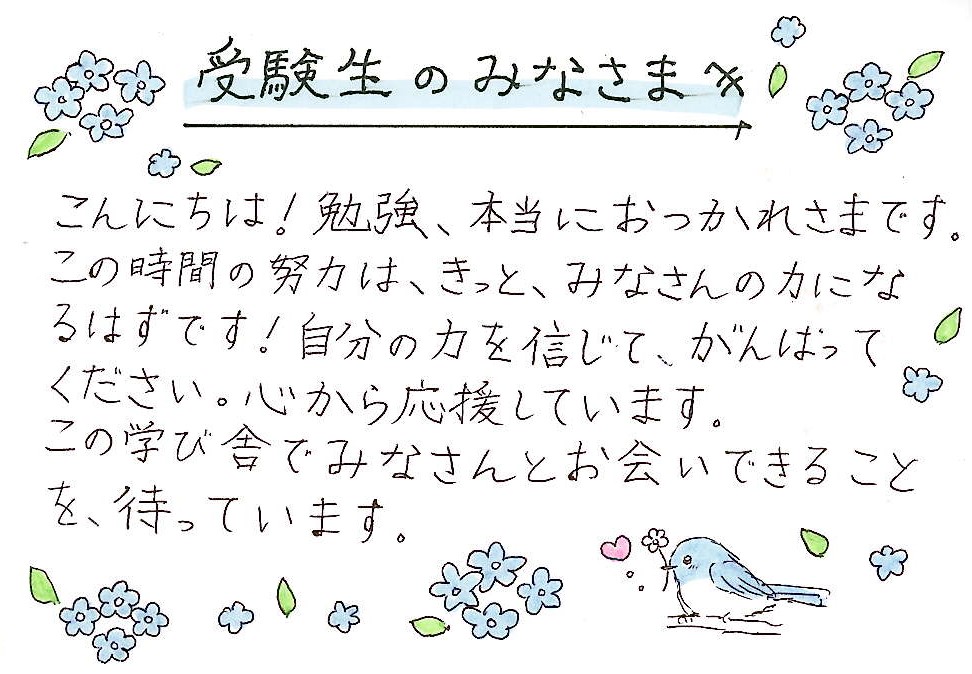 受験生のみなさまへ
こんにちは！勉強、本当におつかれさまです。
この時間の努力は、きっと、みなさんの力にな
るはずです！自分の力を信じて、がんばって
ください。心から応援しています。
この学び舎でみなさんとお会いできること
を、待っています。